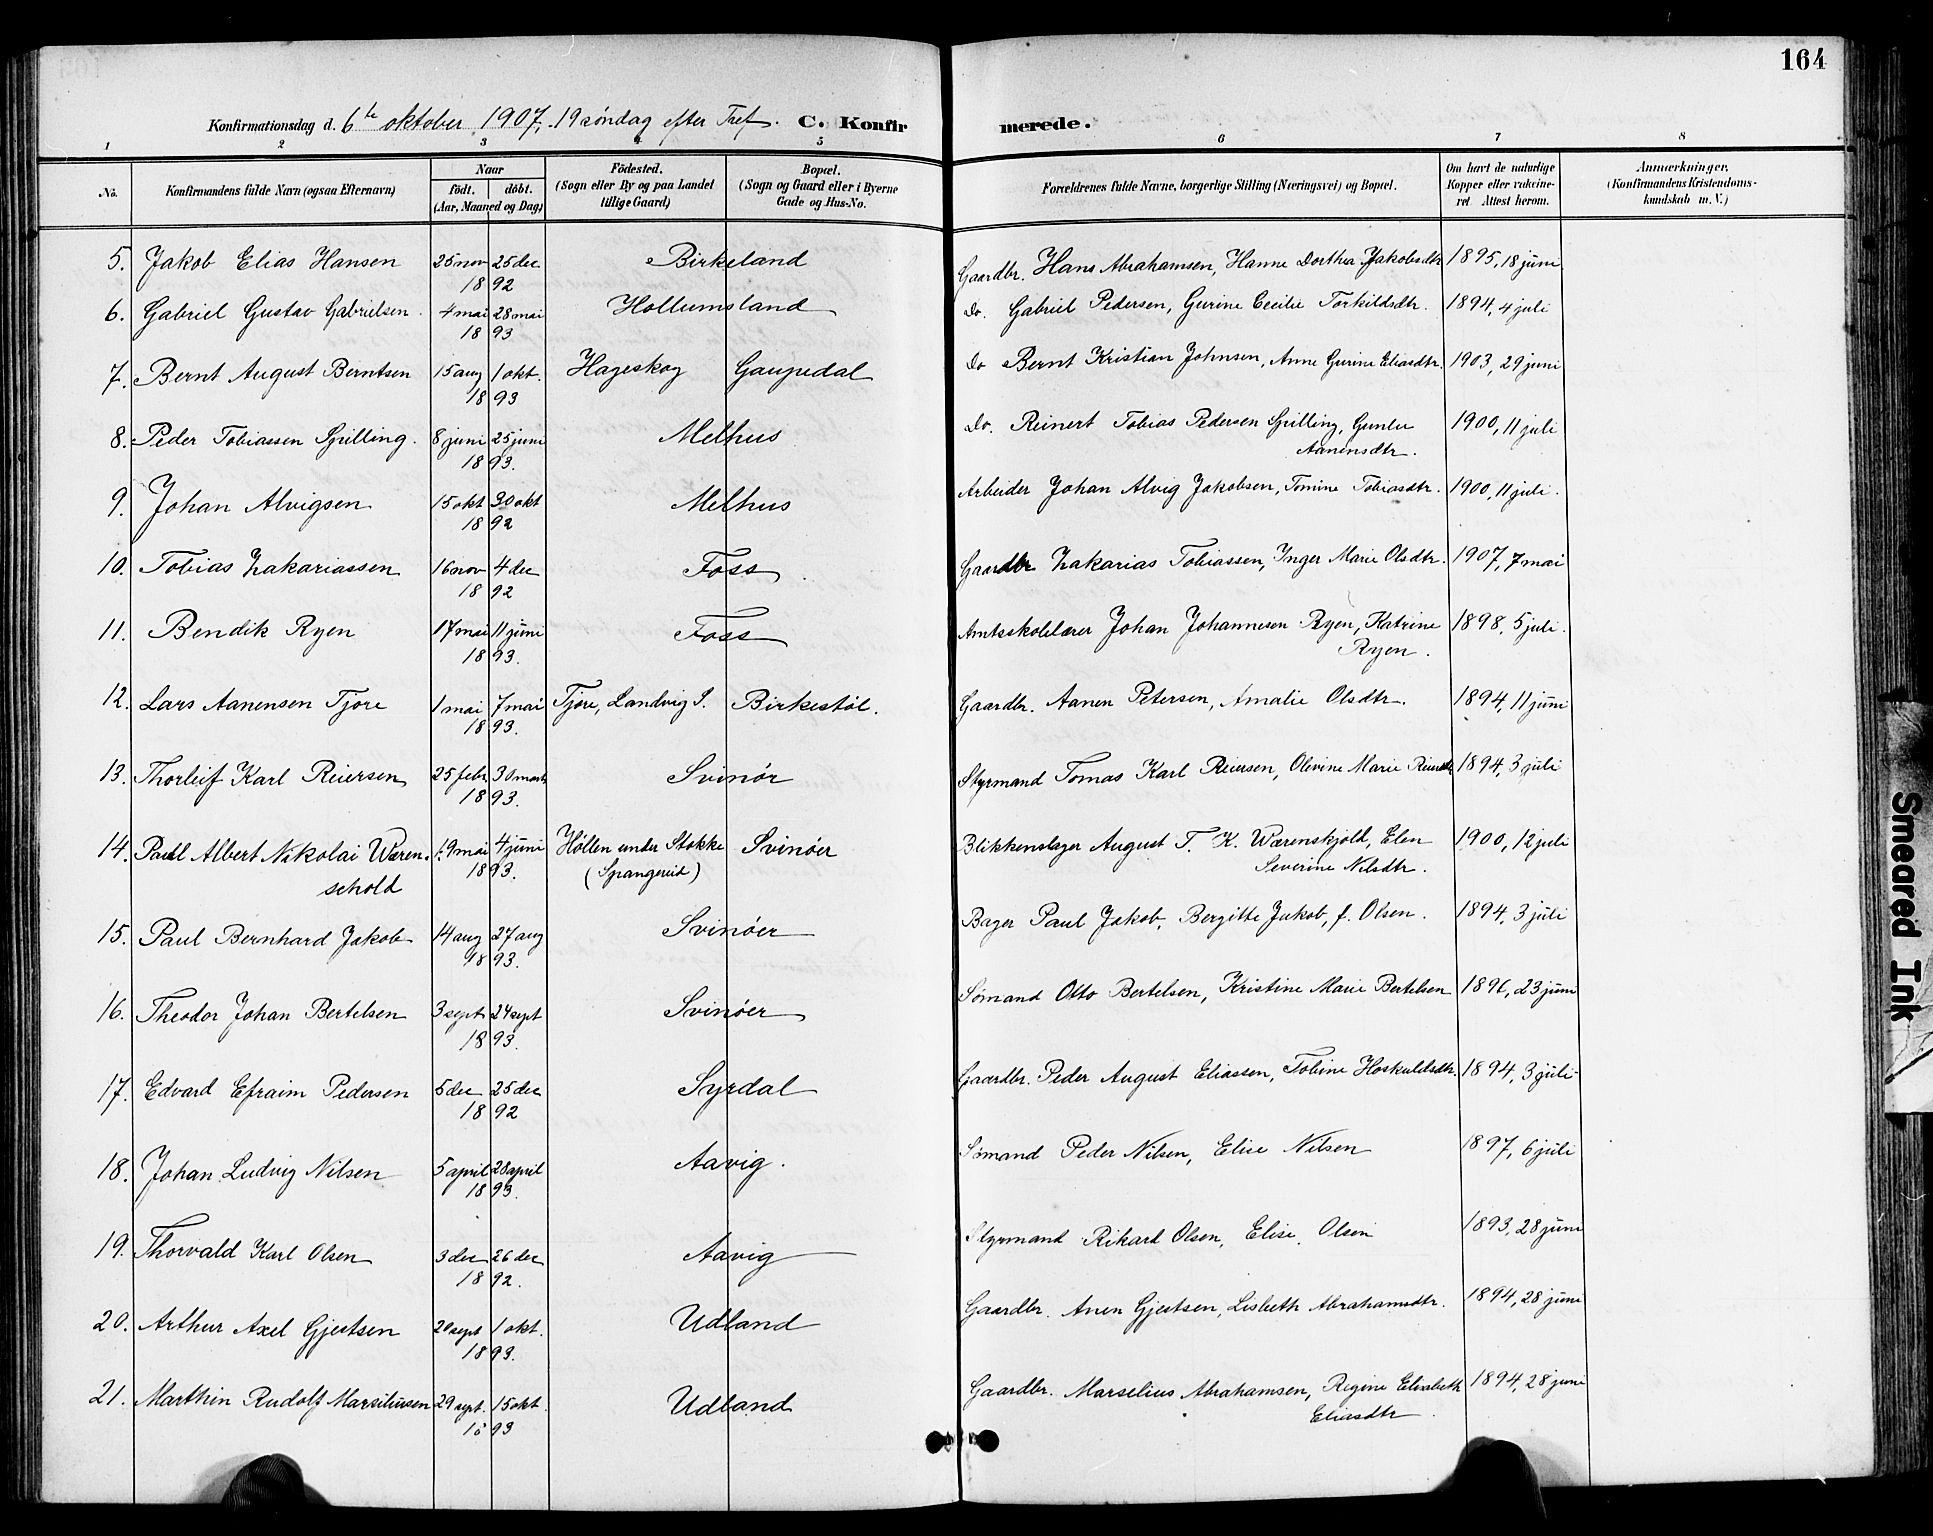 164
Konfirmationsdag d. 6te oktober 1907, 19 söndag efter Tref. C. Konfirmerede.
1 2 3 4 5 6 7 8
No. Konfirmandens fulde Navn (ogsaa Efternavn) Naar födt. döbt. (Aar, Maaned og Dag) Födested. (Sogn eller By og paa Landet tillige Gaard) Bopæl. (Sogn og Gaard eller i Byerne Gade og Hus-No. Forældrenes fulde Navne, borgerlige Stilling (Næringsvei) og Bopæl. Om havt de naturlige Kopper eller vakcineret Attest herom. Anmærkninger. (Konfirmandens Kristendomskundskab m. V.)
5. Jakob Elias Hansen 25 nov 25 dec 1892 Birkeland Gaardbr. Hans Abrahamsen, Hanne Dorthea Jakobsdtr 1895, 18 juni
6. Gabriel Gustav Gabrielsen. 4 mai 28 mai 1893 Hollumsland Do. Gabriel Pedersen, Gurine Cecilie Torkildsdtr. 1894, 4 juli
7. Bernt August Berntsen 15 aug 1 okt. 1893 Hageskog Gaupedal Do Bernt Kristian Johnsen, Anne Gurine Eliasdtr. 1903, 29 juni
8. Peder Tobiassen Spilling. 8 juni 25 juni 1893. Melhus Do. Reinert Tobias Pedersen Spilling, Gunlu Aanensdtr. 1900, 11 juli
9. Johan Alvigsen 15 okt 30 okt 1892 Melhus Arbeider Johan Alvig Jakobsen, Tomine Tobiasdtr. 1900, 11 juli.
10. Tobias Zakariassen 16 nov 4 dec 1892 Foss Gaardbr Zakarias Tobiassen, Inger Marie Olsdtr. 1907, 7 mai
11. Bendik Ryen 17 mai 11 juni 1893. Foss Amtsskolelærer Johan Johannesen Ryen, Katrine Ryen. 1898, 5 juli.
12. Lars Aanensen Tjøre 1 mai 7 mai 1893. Tjøre, Landvig S. Birkestøl. Gaardbr. Aanen Petersen, Amalie Olsdtr. 1894, 11 juni
13. Thorleif Karl Reiersen 25 febr 30 marts 1893. Svinør Styrmand Tomas Karl Reiersen, Olevine Marie 1894, 3 juli
14. Paul Albert Nikolai Wærenschold 19 mai 4 juni 1893. Høllen under Stokke (Spangereid) Svinøer Blikkenslager August T. K. Wærenskjold, Elen Severine Nilsdtr. 1900, 12 juli
15. Paul Bernhard Jakob 14 aug 27 aug 1893. Svinøer Bager Paul Jakob, Bergitte Jakob, f. Olsen. 1894, 3 juli
16. Theodor Johan Bertelsen 3 sept 24 sept 1893. Svinøer Sømand Otto Bertelsen, Kristine Marie Bertelsen 1896, 23 juni
17. Edvard Efraim Pedersen 5 dec 25 dec 1892 Syrdal Gaardbr. Peder August Eliassen, Tobine Hoskuldsdtr. 1894, 3 juli
18. Johan Ludvig Nilsen 5 april 28 april 1893. Aavig. Sømand Peder Nilsen, Elise Nilsen 1897, 6 juli
19. Thorvald Karl Olsen 3 dec 26 dec 1892. Aavig Styrmand Rikard Olsen, Elise Olsen 1893, 28 juni
20. Arthur Axel Gjertsen 20 sept 1 okt. 1893. Udland Gaardbr. Anen Gjertsen, Lisbeth Abrahamsdtr. 1894, 28 juni
21. Marthin Rudolf Marsiliusen 29 sept. 15 okt. 1893 Udland Gaardbr. Marselius Abrahamsen, Regine Elisabeth Eliasdtr. 1894, 28 juni
Smeared Ink